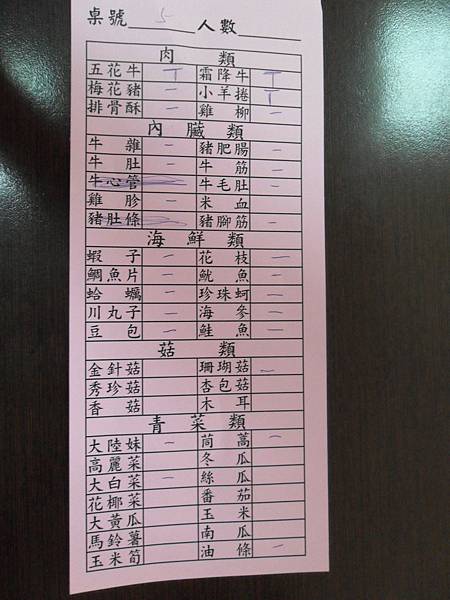 桌號 5 人數
肉 類
五花牛 丅 霜降牛 丅
梅花豬 一 小羊捲 丅
排骨酥 一 雞柳 一
內臟類
牛雜 一 豬肥腸 一
牛肚 一 牛筋 一
牛心管 牛毛肚 一
雞胗 一 米血
豬肚條 豬腳筋 一
海鮮類
蝦子 一 花枝 一
鯛魚片 一 魷魚 一
蛤蠣 一 珍珠蚵 一
川丸子 一 海參 一
豆包 一 鮭魚 一
菇 類
金針菇 珊瑚菇 一
秀珍菇 杏包菇
香菇 木耳
青菜類
大陸妹 一 茼蒿 一
高麗菜 冬瓜
大白菜 一 絲瓜
花椰菜 番茄
大黃瓜 玉米
馬鈴薯 南瓜
玉米筍 油條 一